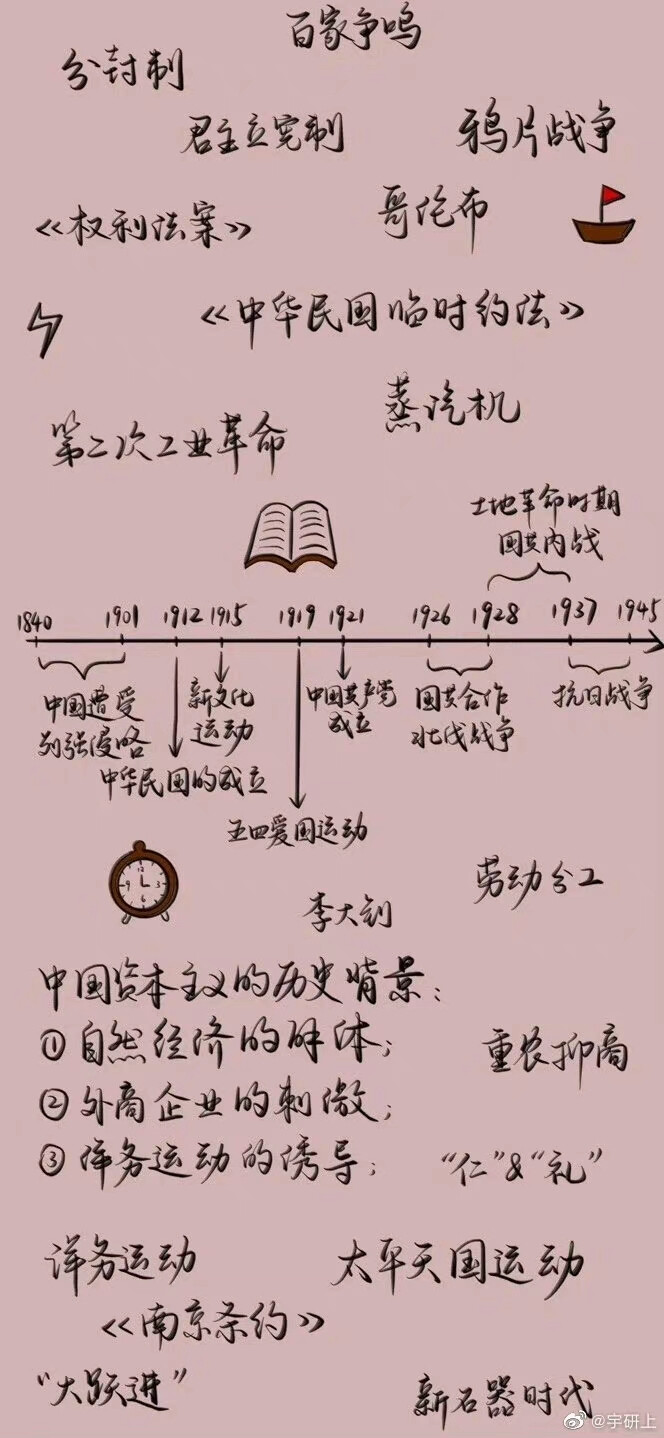 百家争鸣
分封制
君主立宪制
鸦片战争
《权利法案》
哥伦布
《中华民国临时约法》
蒸汽机
第二次工业革命
土地革命时期
国共内战
1840 1901 1912 1915 1919 1921 1926 1928 1937 1945
中国遭受
列强侵略
中华民国的成立
新文化
运动
五四爱国运动
中国共产党
成立
国共合作
北伐战争
抗日战争
12
3
6
9
劳动分工
李大钊
中国资本主义的历史背景:
①自然经济的解体;
重农抑商
②外商企业的刺激;
③洋务运动的诱导;
“仁”&“礼”
洋务运动
太平天国运动
《南京条约》
“大跃进”
新石器时代
@宇研上